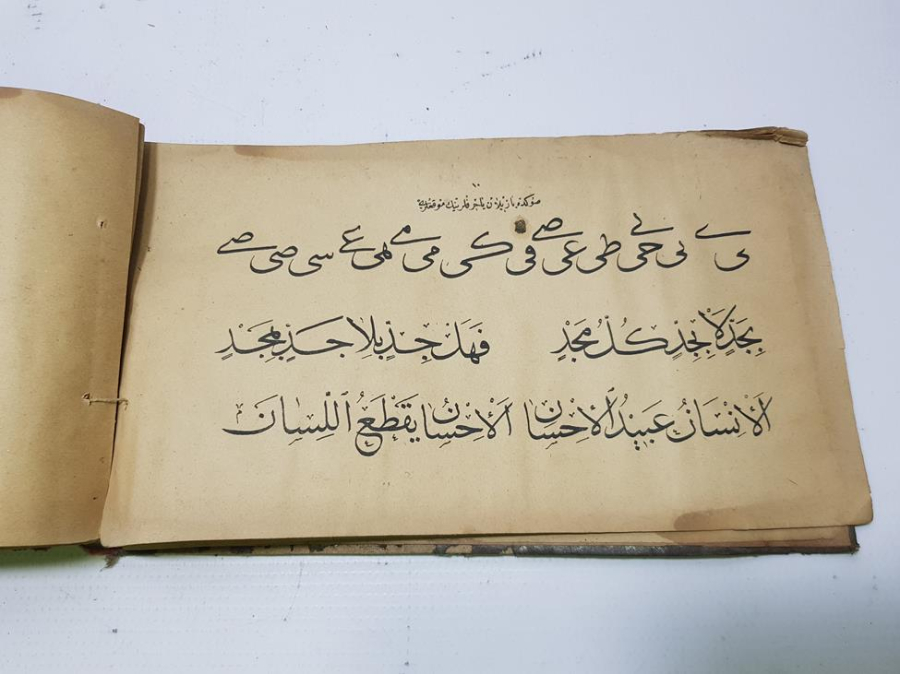 ى ے نى حى طى عى فى كى مى هى سى صى
بِجَدٍّ لَا بِجِدٍّ كُلُّ مَجْدٍ فَهَلْ جِدٌّ بِلَا جَدٍّ بِمُجْدٍ
اَلْاِنْسَانُ عَبِيدُ الْاِحْسَانِ اَلْاِحْسَانُ يَقْطَعُ اللِّسَانَ